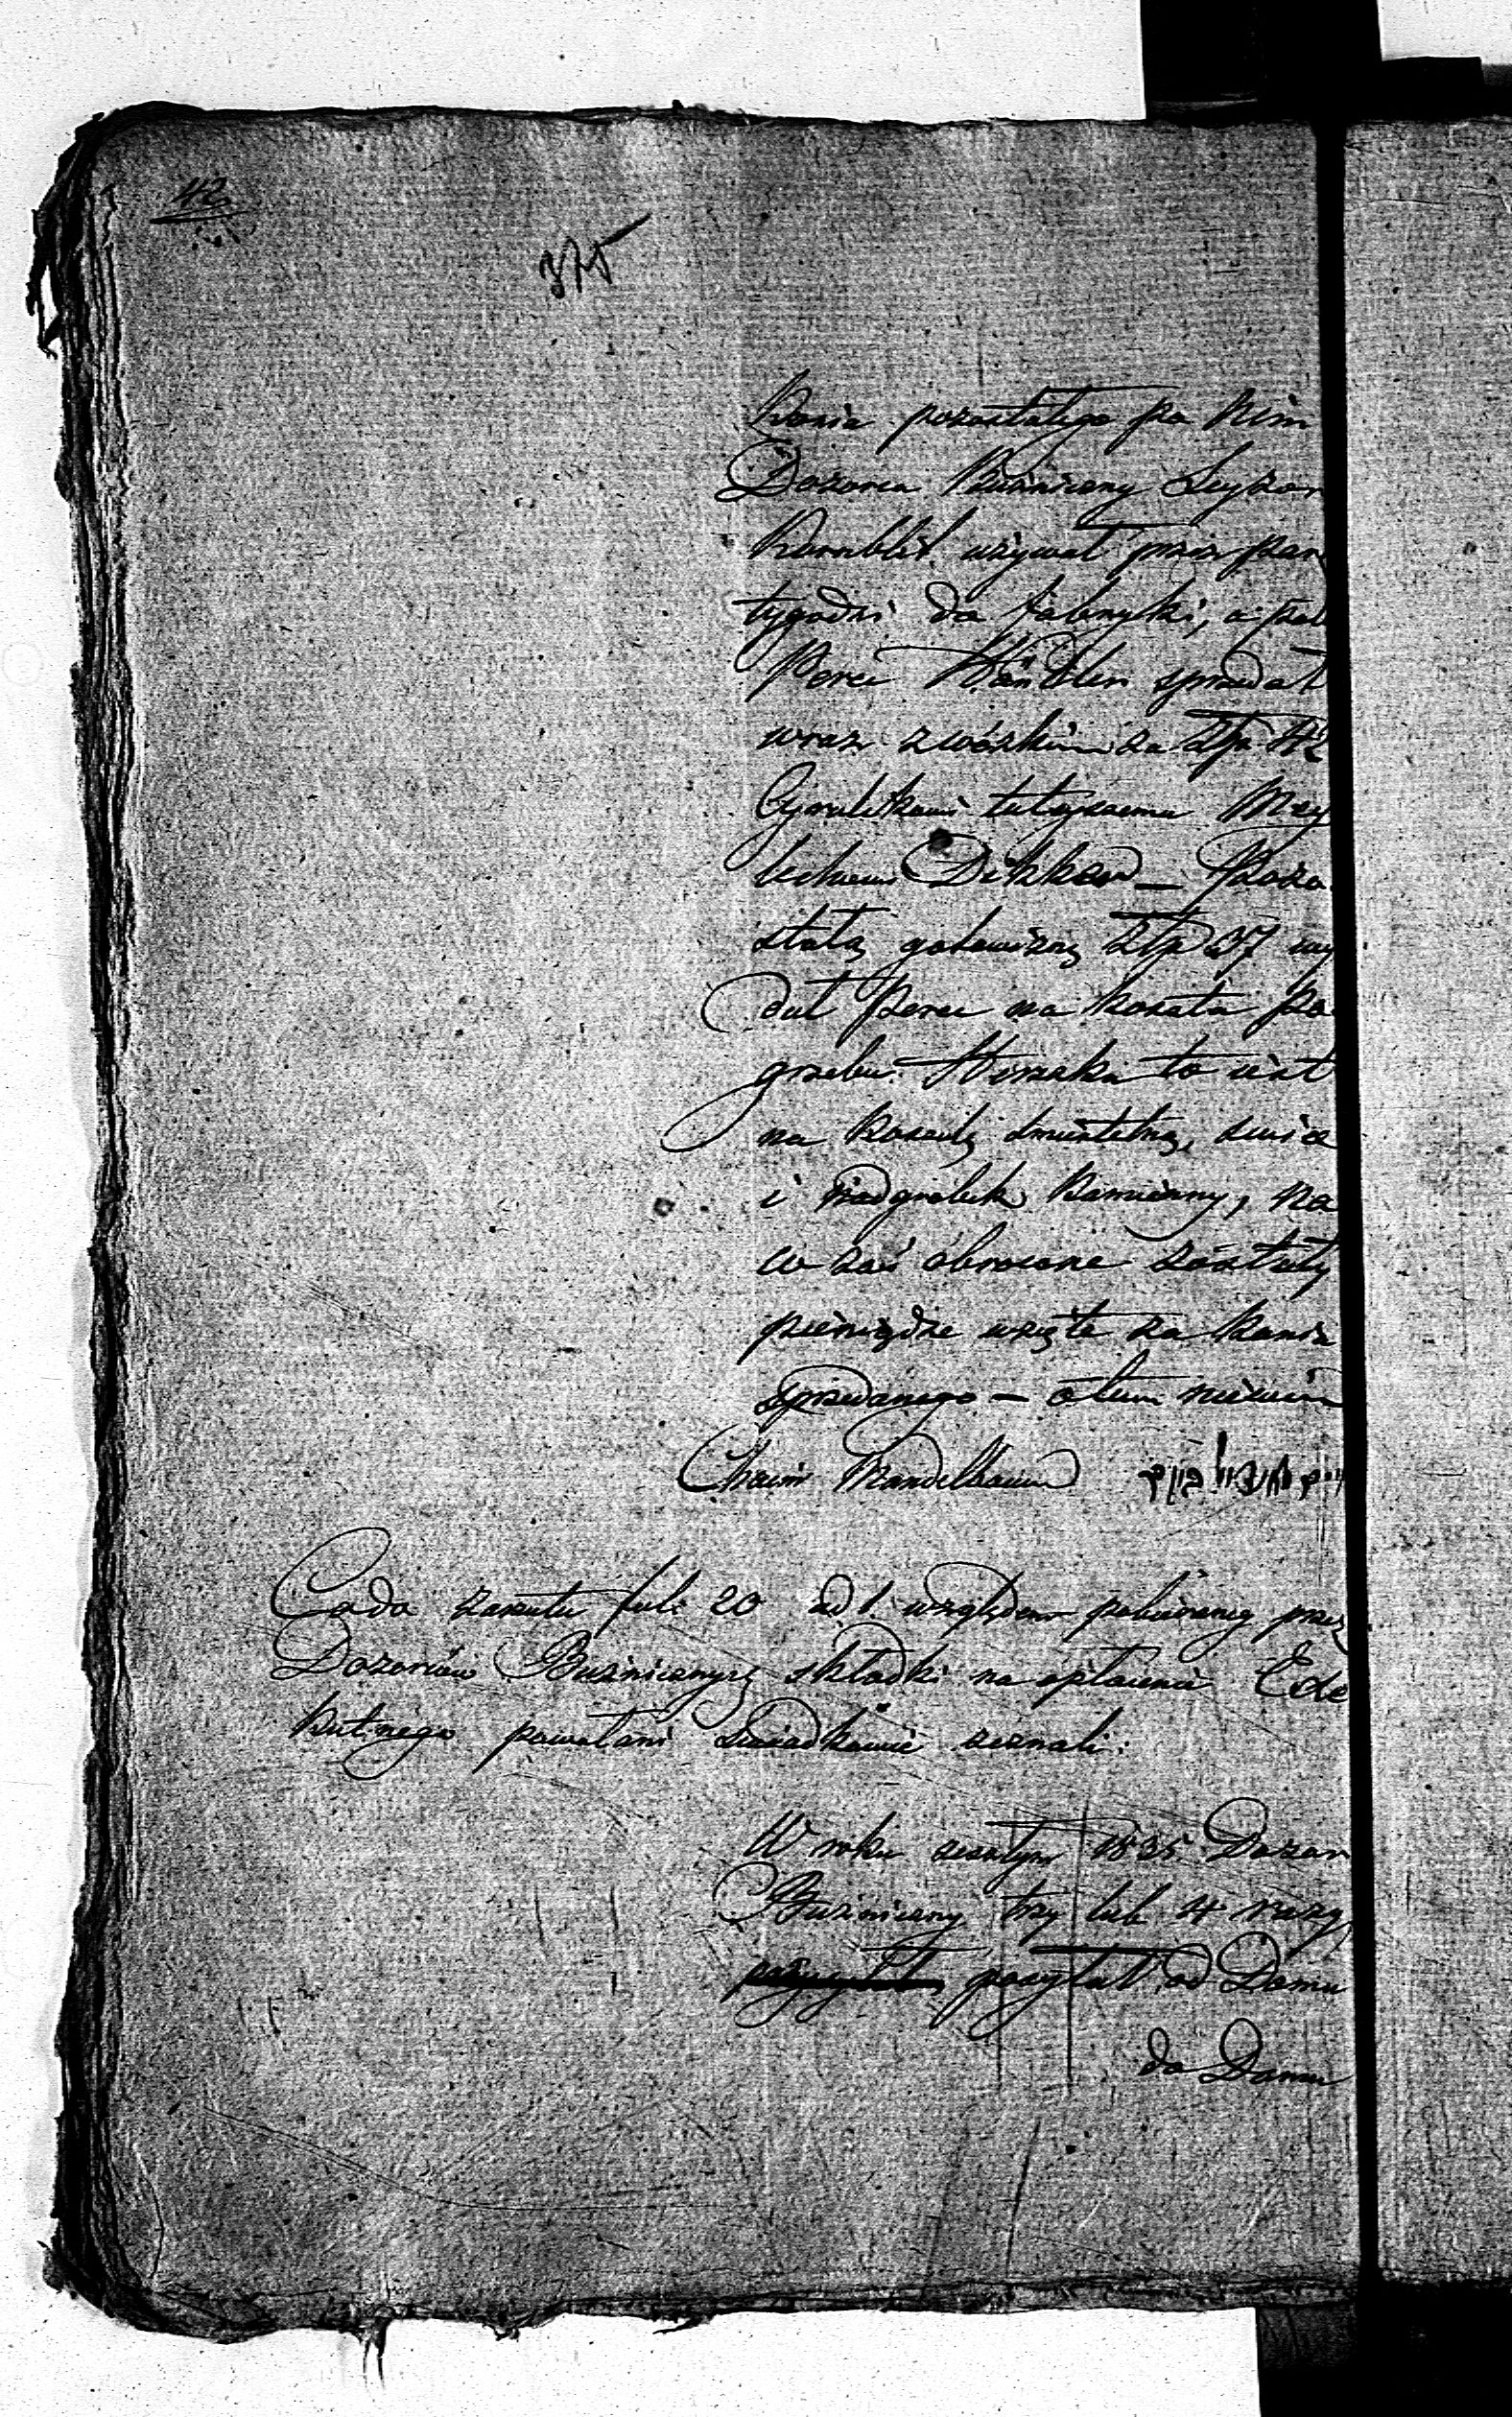 42
375
Konia pozostałego po Nim
Dozorca Bużniczny Leyzor
Kornblit używał przez parę
tygodni do fabryki, a pot
Perec Händler sprzedał
wraz z wózkiem za Złp 42
Cyrulikowi tutejszemu Mey
lechowi Dekker — Pozo
stałą gotowiznę Złp 37 wy
dał Perec na koszta po
grzebu Herszka to iest
na koszulę śmiertelną, swice
i nadgrobek kamienny, na
co zaś obrocone zostały
pieniądze wzięte za konia
sprzedanego — o tem niewim
Chaim Mandelbaum
Co do zarzutu fol: 20 ad 1. względem pobieraney przez
Dozorców Bużnicznych składki na opłacenie Exe
kutnego powołani świadkowie zeznali:
W roku zeszłym 1835 Dozor
Bużniczny trzy lub 4 razy
posyłał od Domu
do Domu